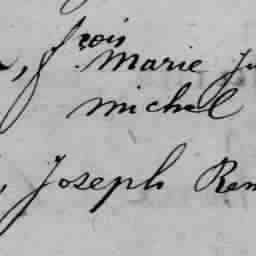 frois Marie
michel
Joseph